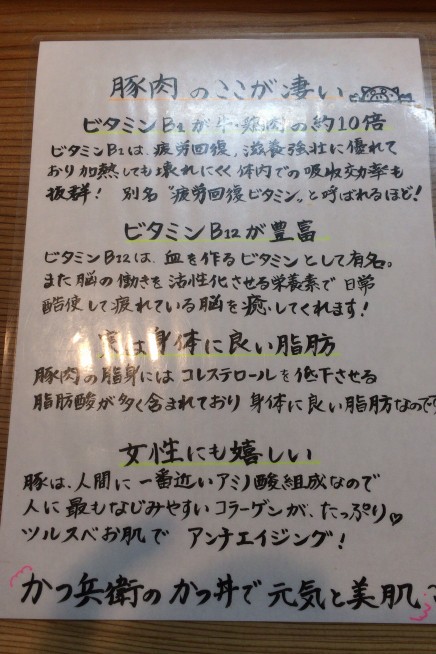 豚肉のここが凄い
ビタミンB1が牛・鶏肉の約10倍
ビタミンB1は、疲労回復、滋養強壮に優れて
おり加熱しても壊れにくく体内での吸収効率も
抜群！ 別名“疲労回復ビタミン”と呼ばれるほど！
ビタミンB12が豊富
ビタミンB12は、血を作るビタミンとして有名。
また脳の働きを活性化させる栄養素で日常
酷使して疲れている脳を癒してくれます！
実は身体に良い脂肪
豚肉の脂身にはコレステロールを低下させる
脂肪酸が多く含まれており身体に良い脂肪なので
女性にも嬉しい
豚は、人間に一番近いアミノ酸組成なので
人に最もなじみやすいコラーゲンが、たっぷり♡
ツルスベお肌で アンチエイジング！
かつ兵衛のかつ丼で元気と美肌